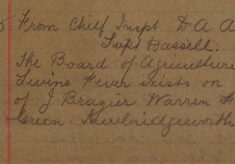 5 From Chief Inspt D A A
Supt Hassell.
The Board of Agriculture
Swine Fever exists on
of J. Brazier Warren
Green.